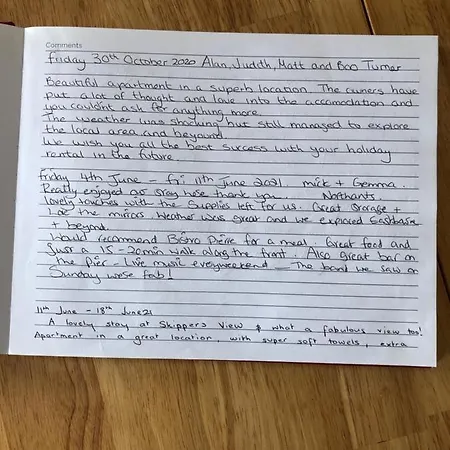 Comments
Friday 30th October 2020 Alan, Judith, Matt and Boo Turner
Beautiful apartment in a superb location. The owners have
put a lot of thought and love into the accomodation and
you couldn't ask for anything more.
The weather was shocking but still managed to explore
the local area and beyond.
We wish you all the best success with your holiday
rental in the future.
Friday 4th June - Fri 11th June 2021. Mick + Gemma.
Really enjoyed our stay here thank you. Northants.
lovely touches with the supplies left for us. Great storage +
the mirros. Weather was great and we explored Eastbourne
+ beyond.
Would recommend Bistro Pierre for a meal. Great food and
just a 15-20min walk along the front. Also great bar on
the pier - Live music everyweekend - The band we saw on
Sunday were fab!
11th June - 18th June 21
A lovely stay at Skippers View & what a fabulous view too!
Apartment in a great location, with super soft towels, extra